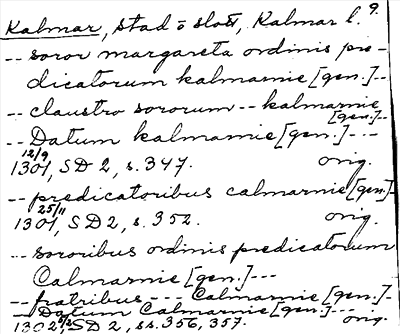 Kalmar, stad o slott, Kalmar l. 9.
-- soror margareta ordinis pre-
dicatorum kalmarnie [gen.]--
-- claustro sororum -- kalmarnie
[gen.]--
-- Datum kalmarnie [gen.]---
12/9
1301, SD 2, s. 347. orig.
-- predicatoribus calmarnie [gen.]
25/11
1301, SD 2, s. 352. orig.
-- sororibus ordinis predicatorum
Calmarnie [gen.]---
-- fratribus --- Calmarnie [gen.]-
-- Datum Calmarnie [gen.]---
1302 SD 2, ss. 356, 357. orig.